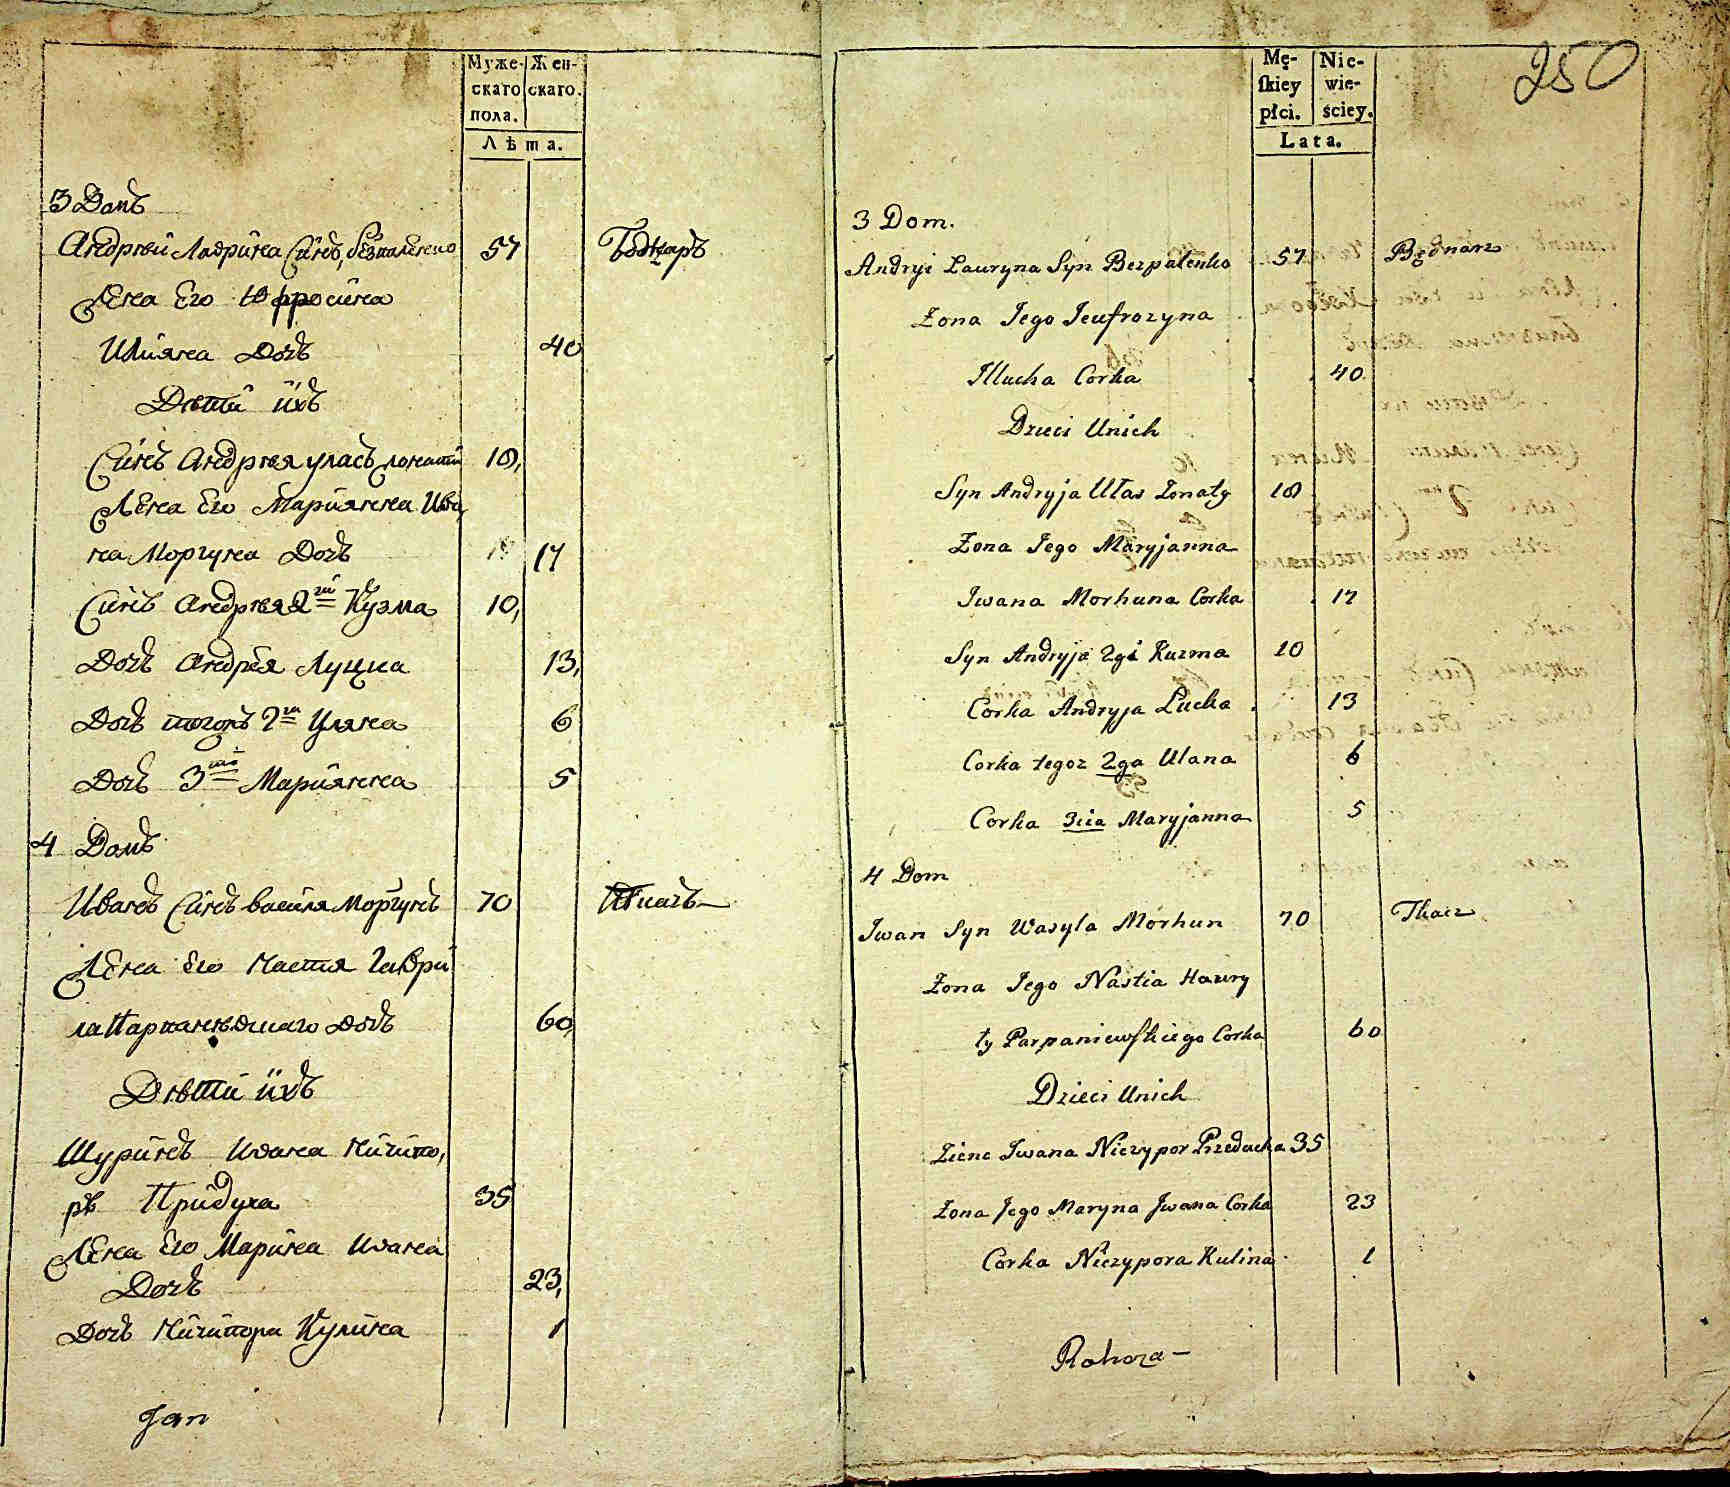 Муже-
скаго
пола.
Жен-
скаго.
Лѣта.
3 Домъ
Андрѣй Лаврина Сынъ, безпаленко 57 Боднаръ
Жена Его Юфросина
Илияха Дочь 40
Дѣти ихъ
Сынъ Андрѣя уласъ, жонатий 18,
Жена Его Марияна Ива,
на Моргуна Дочь 17
Сынъ Андрѣя 2гий Кузма 10,
Дочь Андрѣя Луцка 13,
Дочь тогожъ 2га Уляна 6
Дочь 3тая Марияна 5
4 Домъ
Иванъ Сынъ василя Моргунъ 70 Ткачъ
Жена Его Настя Гаври
ла Парпанѣвскаго Дочь 60,
Дѣти ихъ
Шуринъ Ивана Ничипо,
ръ Придуха 35
Жена Его Марина Ивана
Дочь 23,
Дочь Ничипора Кулина 1
Jan
250
Mę-
ſkiey
płci.
Nie-
wie-
ściey.
Lata.
3 Dom.
Andryi Lauryna Syn Bezpalenko 57 Bednarz
Zona Jego Jeufrozyna
Illucha Corka 40
Dzieci Unich
Syn Andryja Ułas Zonaty 18
Zona Jego Maryjanna
Jwana Morhuna Corka 17
Syn Andryja 2gi Kuzma 10
Corka Andryja Łucka 13
Corka tegoz 2ga Ulana 6
Corka 3cia Maryjanna 5
4 Dom
Jwan Syn Wasyla Morhun 70 Tkacz
Zona Jego Nastia Hawry
ły Parpaniewſkiego Corka 60
Dzieci Unich
Zienc Jwana Niczypor Przeducha 35
Zona Jego Maryna Jwana Corka 23
Corka Niczypora Kulina 1
Rohoza -